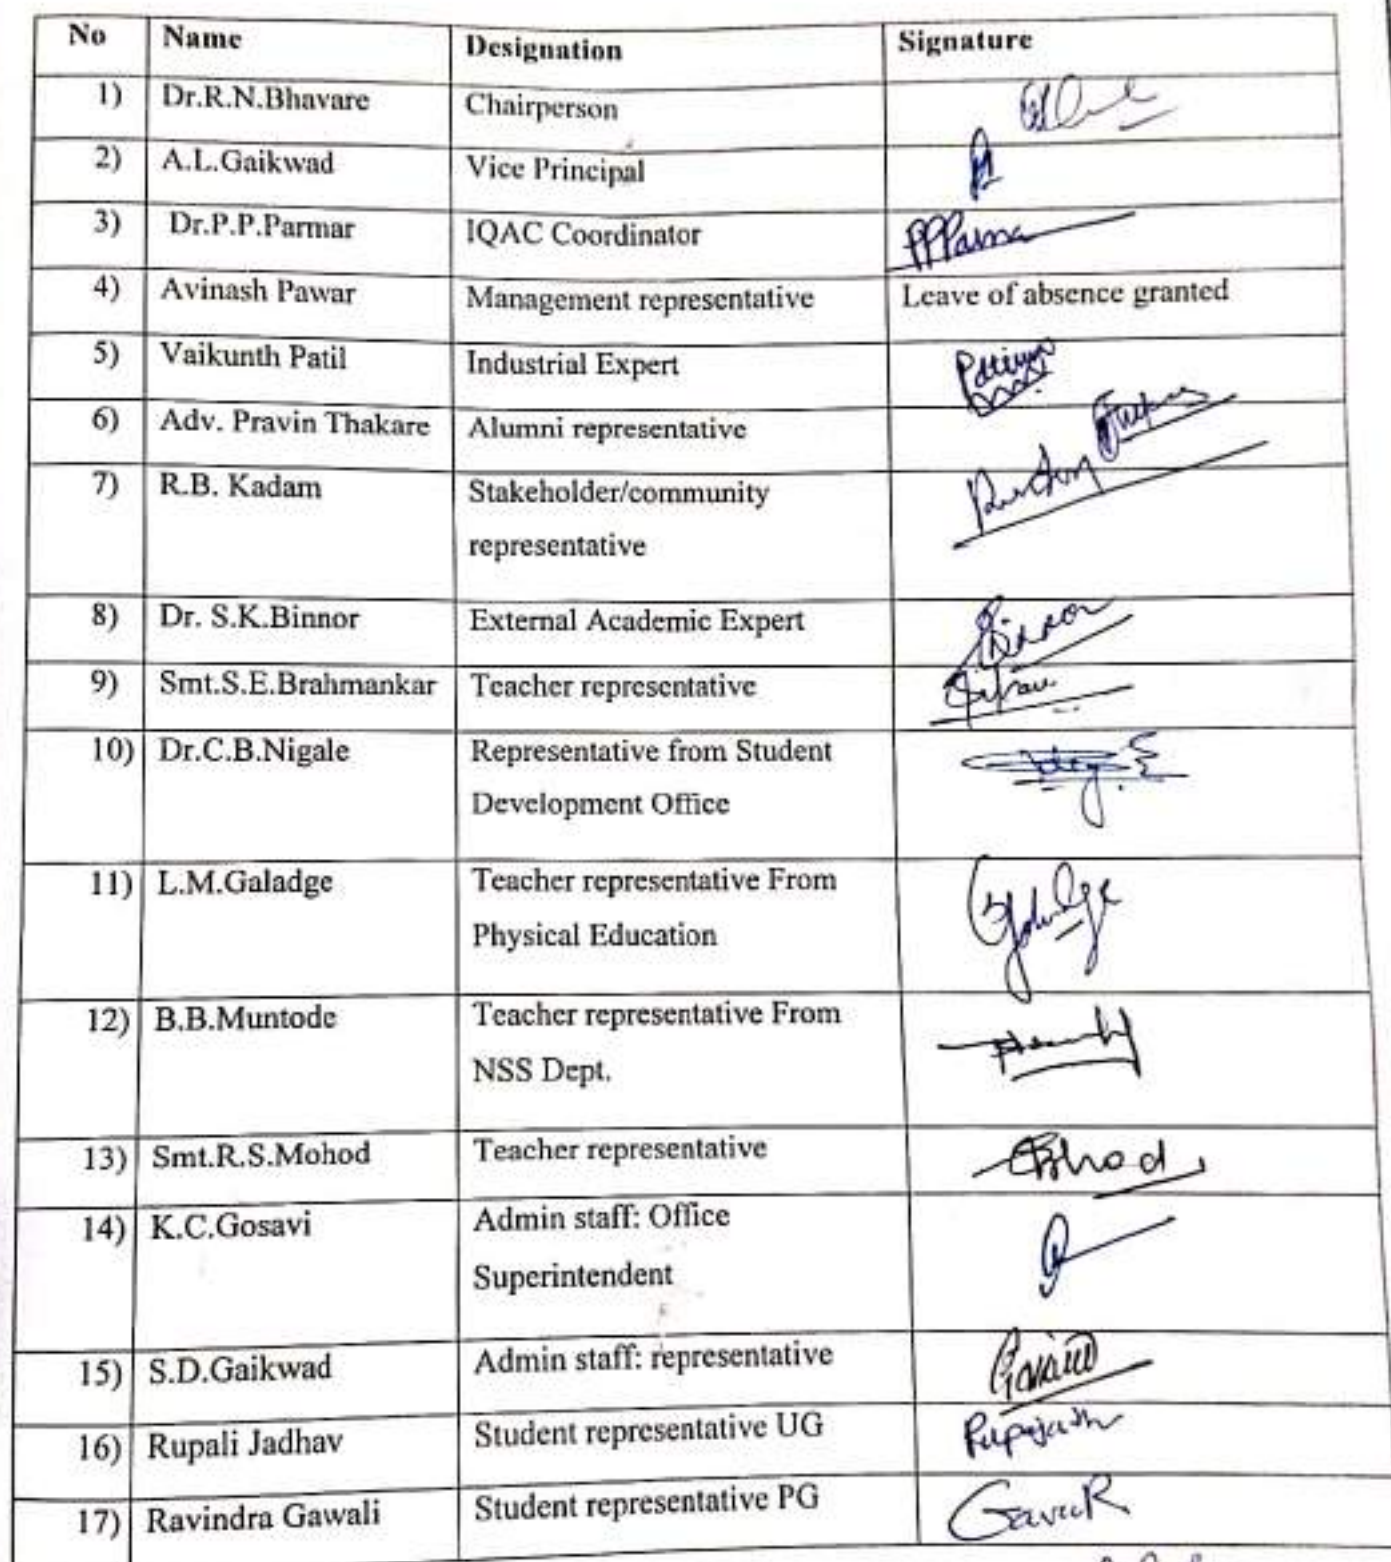 No Name Designation Signature
1) Dr.R.N.Bhavare Chairperson
2) A.L.Gaikwad Vice Principal
3) Dr.P.P.Parmar IQAC Coordinator PPParmar
4) Avinash Pawar Management representative Leave of absence granted
5) Vaikunth Patil Industrial Expert
6) Adv. Pravin Thakare Alumni representative
7) R.B. Kadam Stakeholder/community
representative
8) Dr. S.K.Binnor External Academic Expert
9) Smt.S.E.Brahmankar Teacher representative
10) Dr.C.B.Nigale Representative from Student
Development Office
11) L.M.Galadge Teacher representative From
Physical Education
12) B.B.Muntode Teacher representative From
NSS Dept.
13) Smt.R.S.Mohod Teacher representative
14) K.C.Gosavi Admin staff: Office
Superintendent
15) S.D.Gaikwad Admin staff: representative
16) Rupali Jadhav Student representative UG
17) Ravindra Gawali Student representative PG